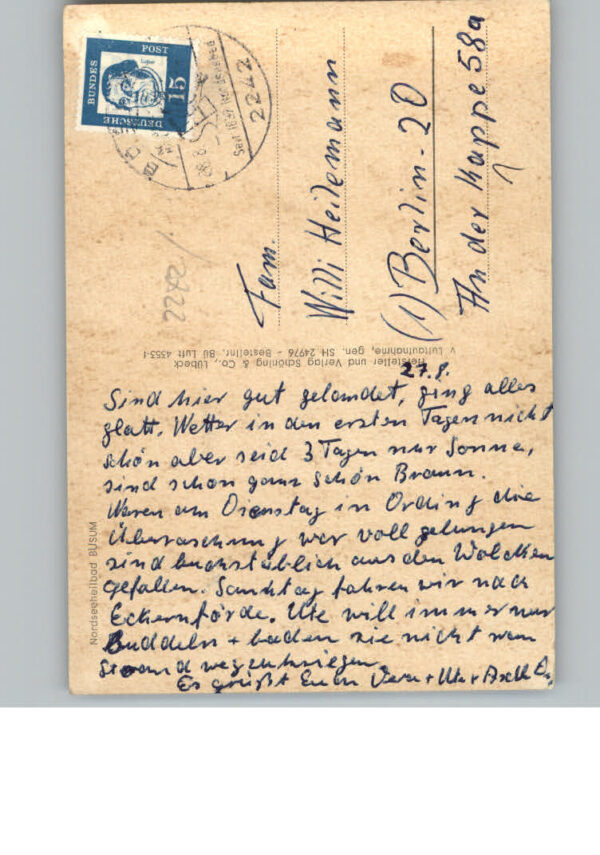 27.8.
Sind hier gut gelandet, ging alles
glatt. Wetter in den ersten Tagen nicht
schön aber seid 3 Tagen nur Sonne,
sind schon ganz schön Braun.
Waren am Dienstag in Ording die
Überaschung war voll gelungen
sind buchstäblich aus den Wolcken
gefallen. Samstag fahren wir nach
Eckernförde. Ute will immer nur
Buddeln + baden sie nicht vom
Strand wegzukriegen.
Es grüßt Euch Vera + Ute + Axel
Fam.
Willi Heilemann
(1) Berlin-20
An der Kappe 58a
DEUTSCHE
BUNDES
POST
15
Luther
2242
2242
Hersteller und Verlag Schöning & Co., Lübeck
v Luftaufnahme, gen. SH 24976 - Bestellnr. Bü Luft 4353-1
Nordseeheilbad BÜSUM